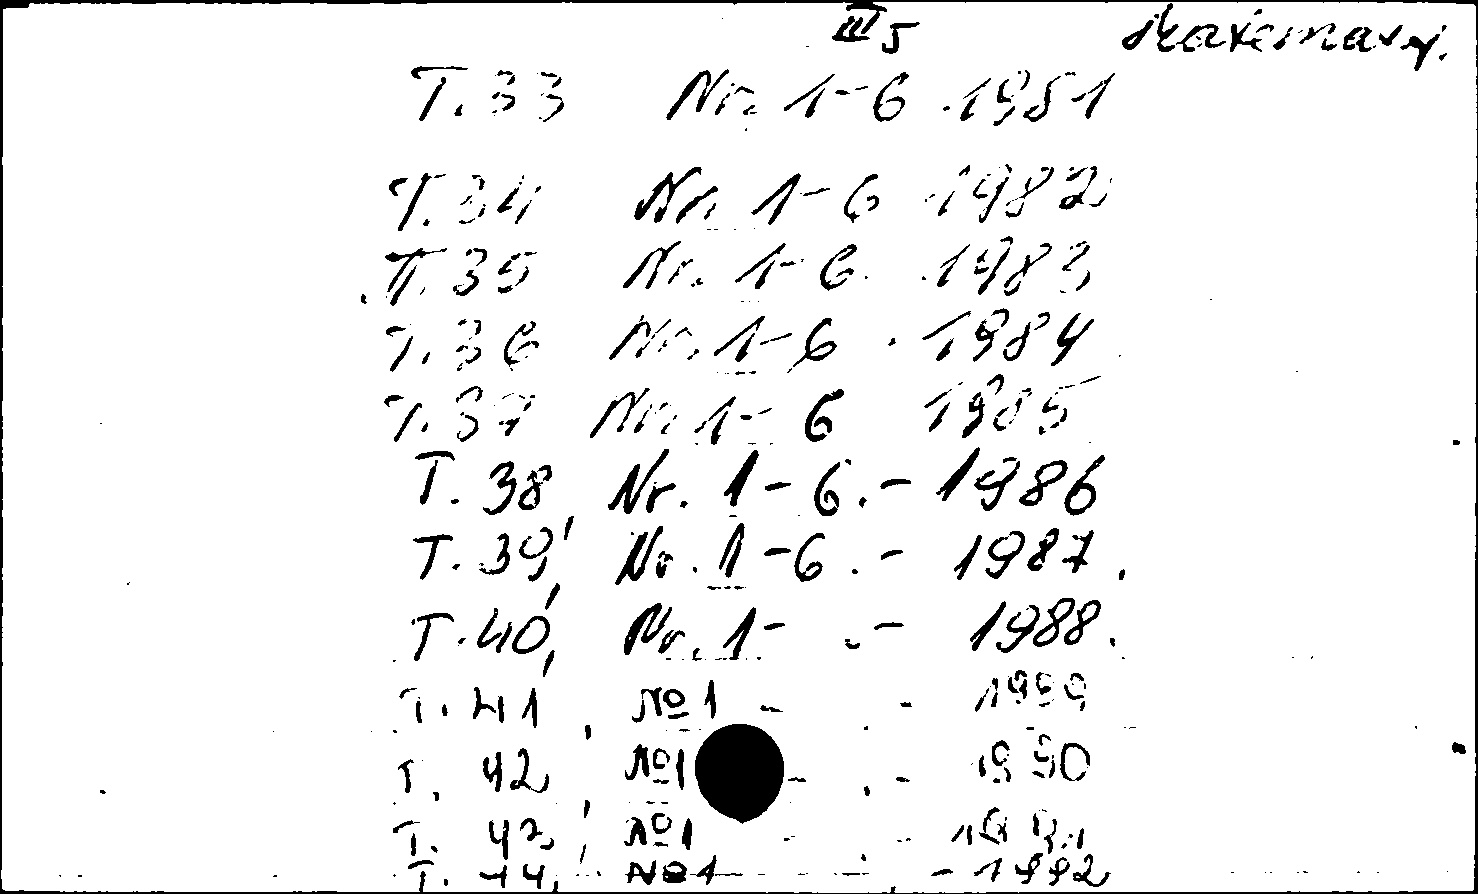 III 5 Математ.
T. 33 Nr. 1-6 .1981
T. 34 Nr. 1-6 1982
T. 35 Nr. 1-6. 1983
T. 36 Nr. 1-6 . 1984
T. 37 Nr. 1- 6 1985
T. 38, Nr. 1-6.- 1986
T. 39, Nr. 1-6.- 1987.
T. 40, Nr. 1- .- 1988.
T. 41, №1 - . - 1989
T. 42, №1 - . - 1990
T. 43, №1 - - 1991
T. 44, №1 - 1992